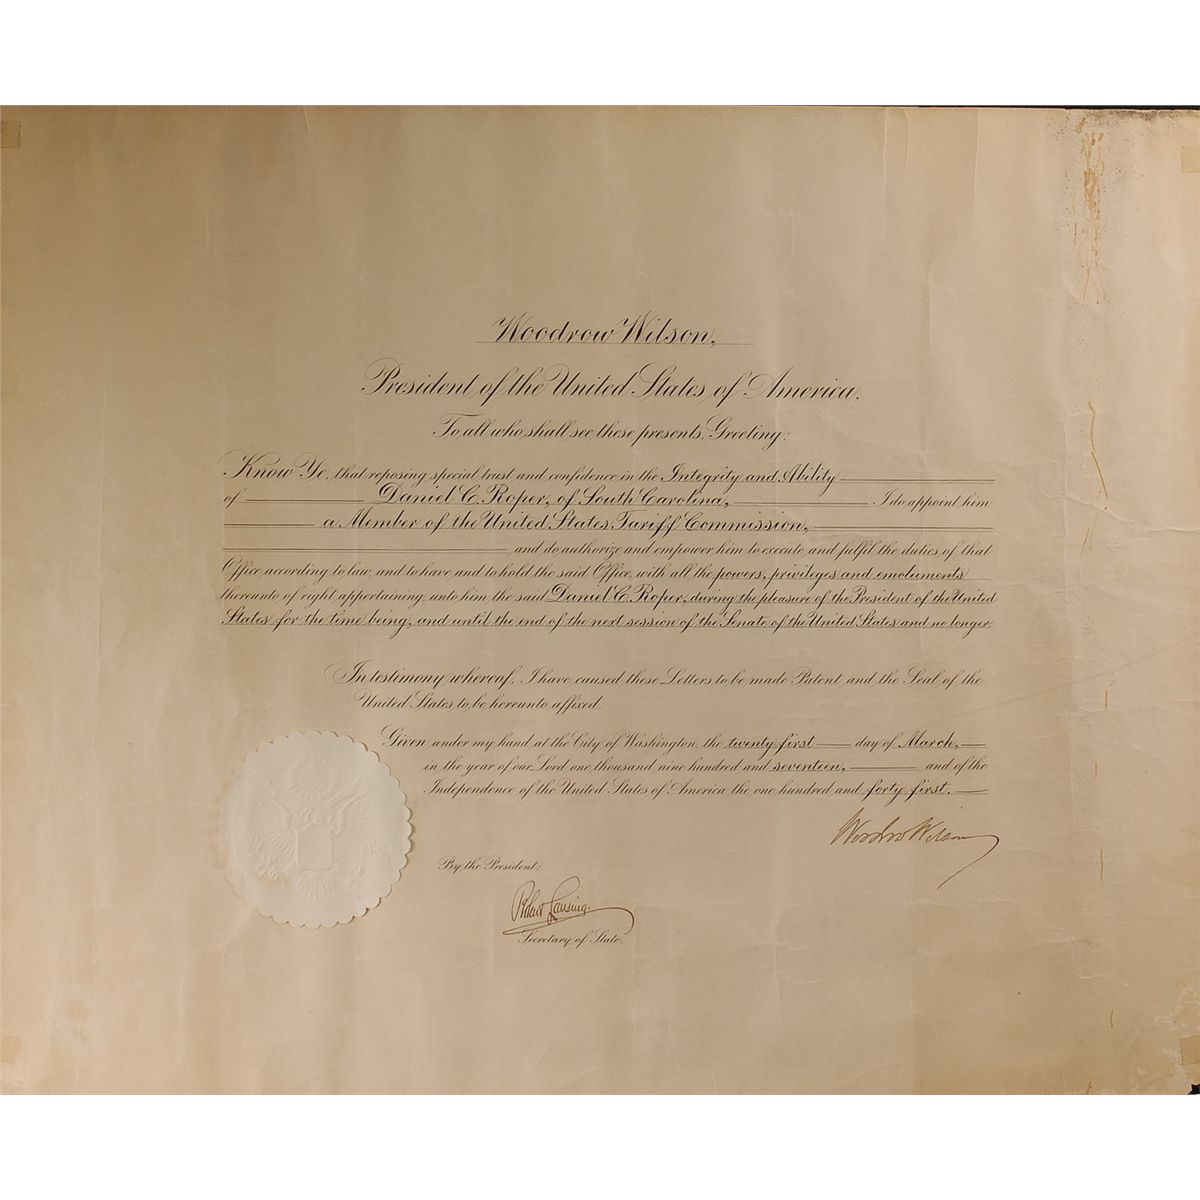 Woodrow Wilson,
President of the United States of America.
To all who shall see these presents, Greeting:
Know Ye, that reposing special trust and confidence in the Integrity and Ability
of Daniel C. Roper, of South Carolina, I do appoint him
a Member of the United States Tariff Commission,
and do authorize and empower him to execute and fulfil the duties of that
Office according to law, and to have and to hold the said Office, with all the powers, privileges and emoluments
thereunto of right appertaining, unto him the said Daniel C. Roper, during the pleasure of the President of the United
States for the time being, and until the end of the next session of the Senate of the United States and no longer.
In testimony whereof, I have caused these Letters to be made Patent and the Seal of the
United States to be hereunto affixed.
Given under my hand at the City of Washington, the twenty first day of March,
in the year of our Lord one thousand nine hundred and seventeen, and of the
Independence of the United States of America the one hundred and forty first.
Woodrow Wilson
By the President:
Robert Lansing.
Secretary of State.